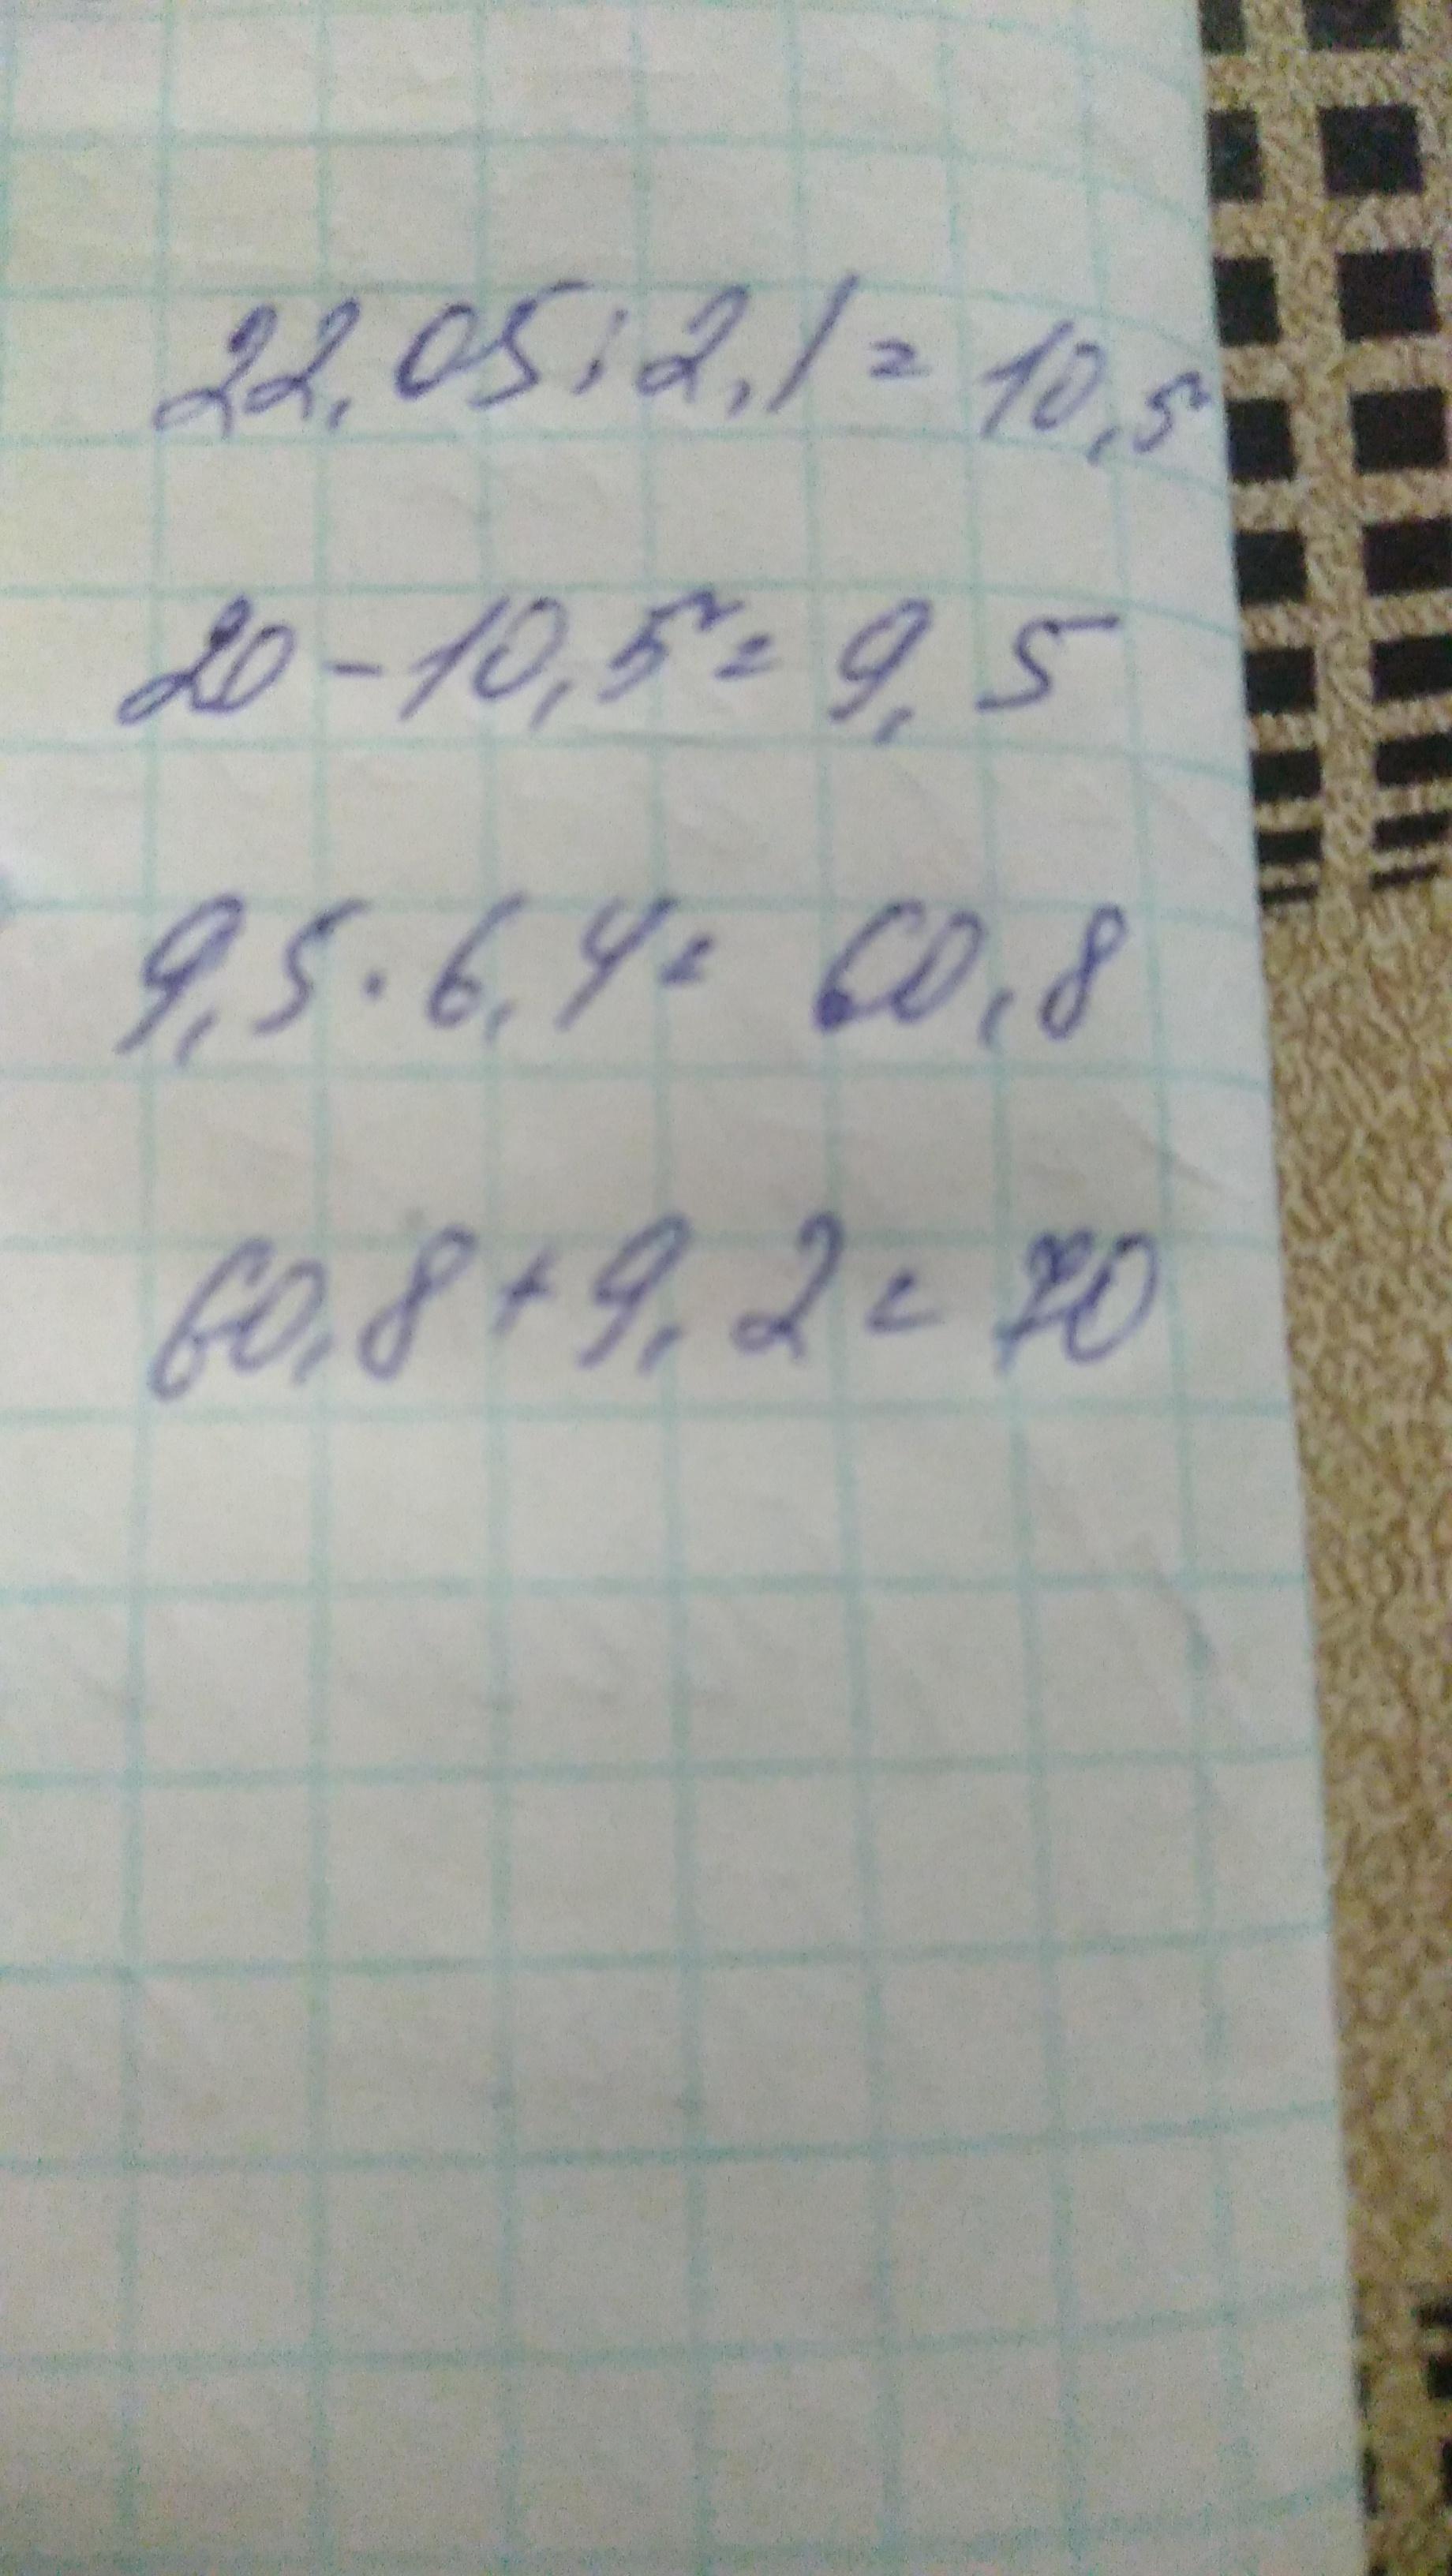 22,05:2,1=10,5
20-10,5=9,5
9,5·6,4=60,8
60,8+9,2=70